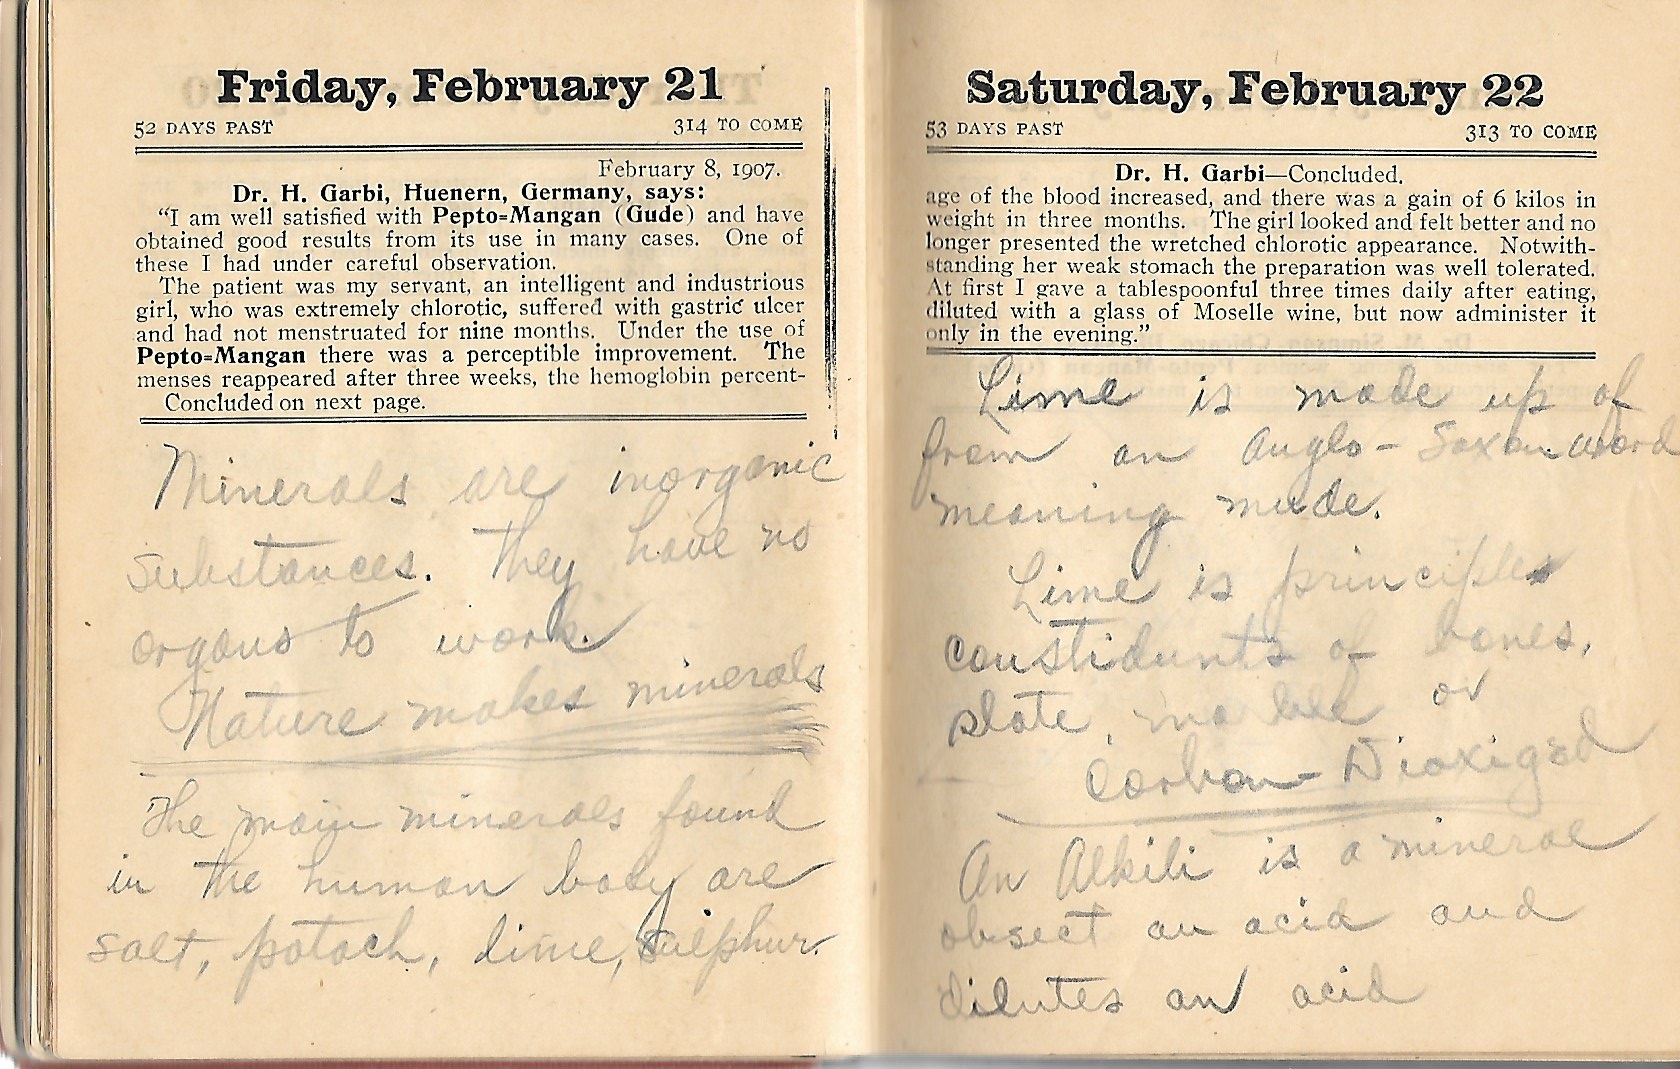 Friday, February 21
52 DAYS PAST 314 TO COME
February 8, 1907.
Dr. H. Garbi, Huenern, Germany, says:
"I am well satisfied with Pepto=Mangan (Gude) and have
obtained good results from its use in many cases. One of
these I had under careful observation.
The patient was my servant, an intelligent and industrious
girl, who was extremely chlorotic, suffered with gastric ulcer
and had not menstruated for nine months. Under the use of
Pepto=Mangan there was a perceptible improvement. The
menses reappeared after three weeks, the hemoglobin percent-
Concluded on next page.
Minerals are inorganic
substances. They have no
organs to work.
Nature makes minerals
The main minerals found
in the human body are
salt, potach, lime, sulphur.
Saturday, February 22
53 DAYS PAST 313 TO COME
Dr. H. Garbi—Concluded.
age of the blood increased, and there was a gain of 6 kilos in
weight in three months. The girl looked and felt better and no
longer presented the wretched chlorotic appearance. Notwith-
standing her weak stomach the preparation was well tolerated.
At first I gave a tablespoonful three times daily after eating,
diluted with a glass of Moselle wine, but now administer it
only in the evening."
Lime is made up of
from an Anglo-Saxon word
meaning mude.
Lime is principles
of bones,
slate, or
Carbon-Dioxiged
An Alkili is a mineral
obsect an acid and
dilutes an acid